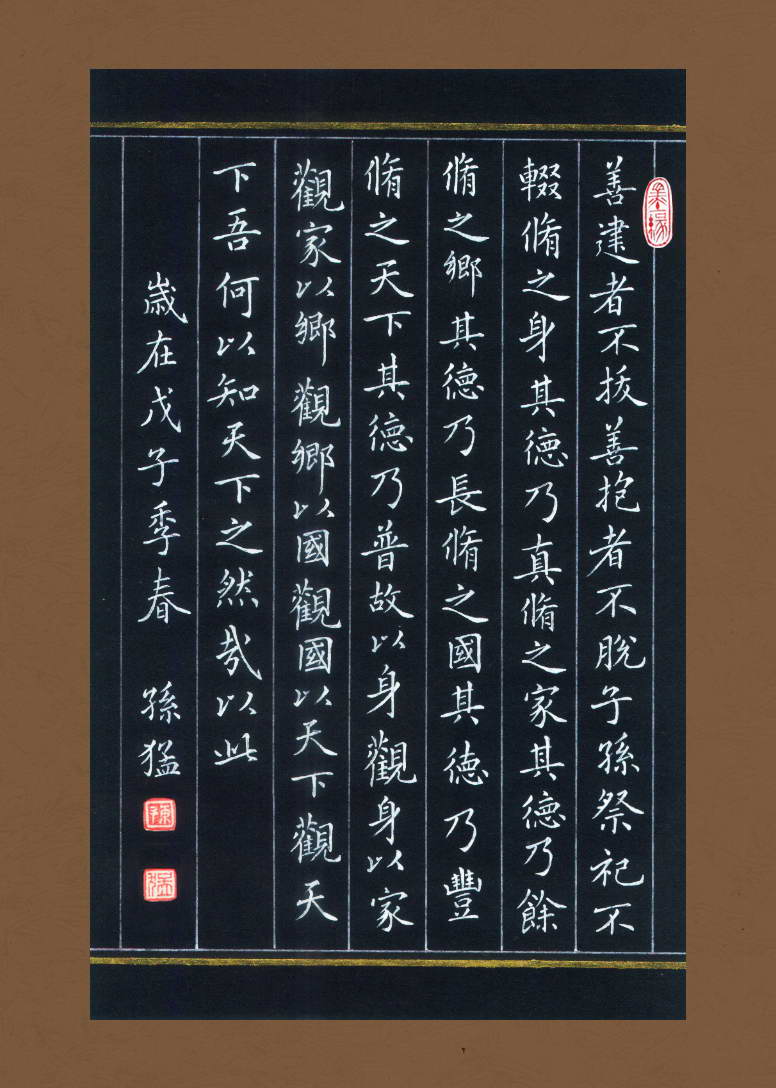 善建者不拔善抱者不脫子孫祭祀不
輟脩之身其德乃真脩之家其德乃餘
脩之鄉其德乃長脩之國其德乃豐
脩之天下其德乃普故以身觀身以家
觀家以鄉觀鄉以國觀國以天下觀天
下吾何以知天下之然哉以此
歲在戊子季春 孫猛